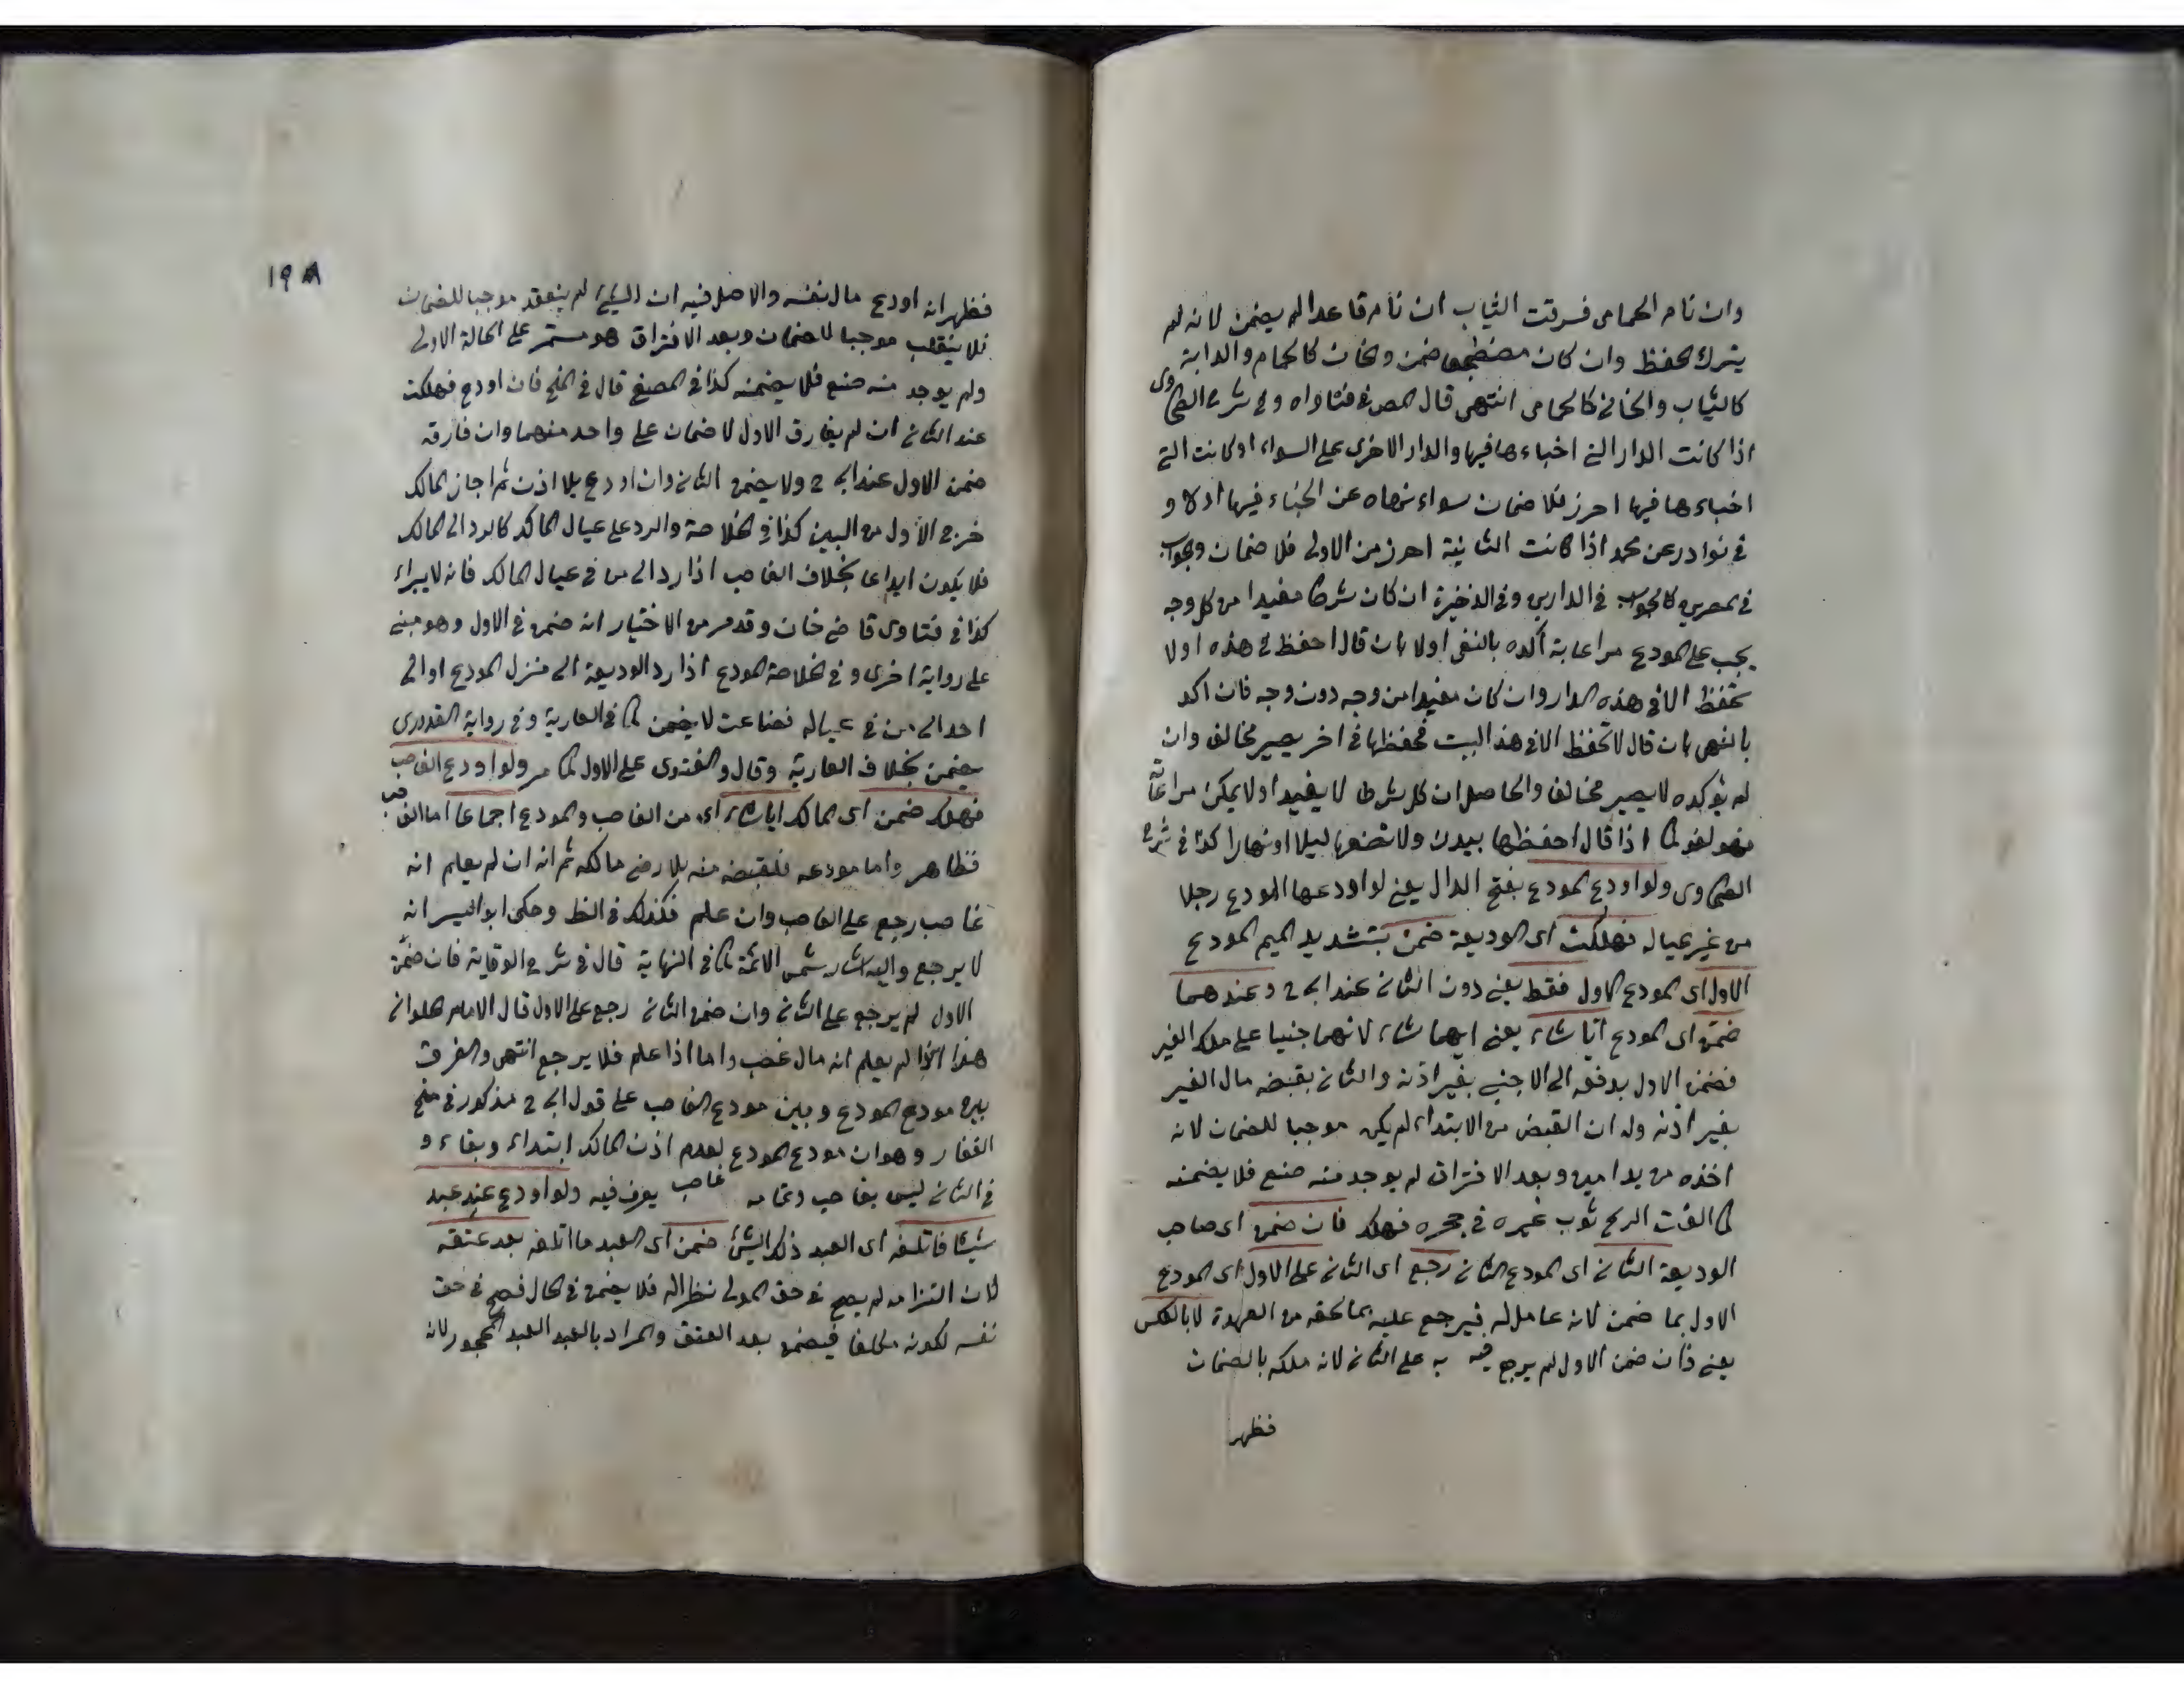 وان نام الحمامى فسرقت الثياب ان نام قاعدا لم يضمن لانه لم
يترك الحفظ وان كان مضطجعا ضمن والخان كالحمام والدابة
كالثياب والخانى كالحمامى انتهى قال المص فى فتاواه وفى شرح الطحاوى
اذا كانت الدار التى اخباءها فيها والدار الاخرى على السواء او كانت التى
اخباءها فيها احرز فلا ضمان سواء نهاه عن الخباء فيها اولا و
فى نوادر عن محمد اذا كانت الثانية احرز من الاولى فلا ضمان والجواب
فى المصرين كالجواب فى الدارين وفى الذخيرة ان كان شرطا مفيدا من كل وجه
يجب على المودع مراعاته أكده بالنفى اولا بان قال احفظ فى هذه اولا
تحفظ الا فى هذه الدار وان كان مفيدا من وجه دون وجه فان اكد
بالنهى بان قال لا تحفظ الا فى هذا البيت فحفظها فى اخر يصير مخالف وان
لم يؤكده لا يصير مخالف والحاصل ان كل شرط لا يفيد اولا يمكن مراعاته
فهو لغو كما اذا قال احفظها بيدك ولا تضعها ليلا او نهارا كذا فى شرح
الطحاوى ولو اودع المودع بفتح الدال يعنى لو اودعها المودع رجلا
من غير عياله فهلكت اى الوديعة ضمن بتشديد الميم المودع
الاول اى المودع الاول فقط يعنى دون الثانى عند ابى ح وعندهما
ضمن اى المودع أيا شاء يعنى ايهما شاء لانهما جنيا على ملك الغير
فضمن الاول بدفعه الى الاجنبى بغير اذنه والثانى بقبضه مال الغير
بغير اذنه وله ان القبض من الابتداء لم يكن موجبا للضمان لانه
اخذه من يد امين وبعد الافتراق لم يوجد منه صنع فلا يضمنه
كما القت الريح ثوب غيره فى حجره فهلك فان ضمن اى صاحب
الوديعة الثانى اى المودع الثانى رجع اى الثانى على الاول اى المودع
الاول بما ضمن لانه عامل له فيرجع عليه بما لحقه من العهدة لا بالعكس
يعنى فان ضمن الاول لم يرجع فيه به على الثانى لانه ملكه بالضمان
فظهر
١٩٨
فظهر انه اودع مال نفسه والاصل فيه ان الشئ لم ينعقد موجبا للضمان
فلا ينقلب موجبا للضمان وبعد الافتراق هو مستمر على الحالة الاولى
ولم يوجد منه صنع فلا يضمنه كذا فى المصفى قال فى المنح فان اودع فهلكت
عند الثانى ان لم يفارق الاول لا ضمان على واحد منهما وان فارقه
ضمن الاول عند ابى ح ولا يضمن الثانى وان اودع بلا اذن ثم اجاز المالك
خرج الاول من البين كذا فى الخلاصة والرد على عيال المالك كالرد الى المالك
فلا يكون ايداعا بخلاف الغاصب اذا رد الى من فى عيال المالك فانه لا يبراء
كذا فى فتاوى قاضى خان وقد مر من الاختيار انه ضمن فى الاول وهو مبنى
على رواية اخرى وفى الخلاصة المودع اذا رد الوديعة الى منزل المودع او الى
احد الى من فى عياله فضاعت لا يضمن كما فى العارية وفى رواية القدورى
يضمن بخلاف العارية وقال والفتوى على الاول كما مر ولو اودع الغاصب
فهلك ضمن اى المالك ايا شاء اى من الغاصب والمودع اجماعا اما الغاصب
فظاهر واما مودعه فلقبضه منه بلا رضى مالكه ثم انه ان لم يعلم انه
غاصب رجع على الغاصب وان علم فكذلك فى الظ وحكى ابو اليسر انه
لا يرجع واليه اشار شمس الائمة كما فى النهاية قال فى شرح الوقاية فان ضمن
الاول لم يرجع على الثانى وان ضمن الثانى رجع على الاول قال الامام الحلوانى
هذا اذا لم يعلم انه مال غصب واما اذا علم فلا يرجع انتهى والفرق
بين مودع المودع وبين مودع الغاصب على قول ابى ح مذكور فى منح
الغفار وهو ان مودع المودع لعدم اذن المالك ابتداء وبقاء و
فى الثانى ليس بغاصب وتمامه غاصب يعرف فيه ولو اودع عند عبد
شيئا فاتلفه اى العبد ذلك الشئ ضمن اى العبد ما اتلفه بعد عتقه
لان التزامه لم يصح فى حق المولى نظرا له فلا يضمن فى الحال فصح فى حق
نفسه لكونه مكلفا فيضمن بعد العتق والمراد بالعبد العبد المحجور لانه